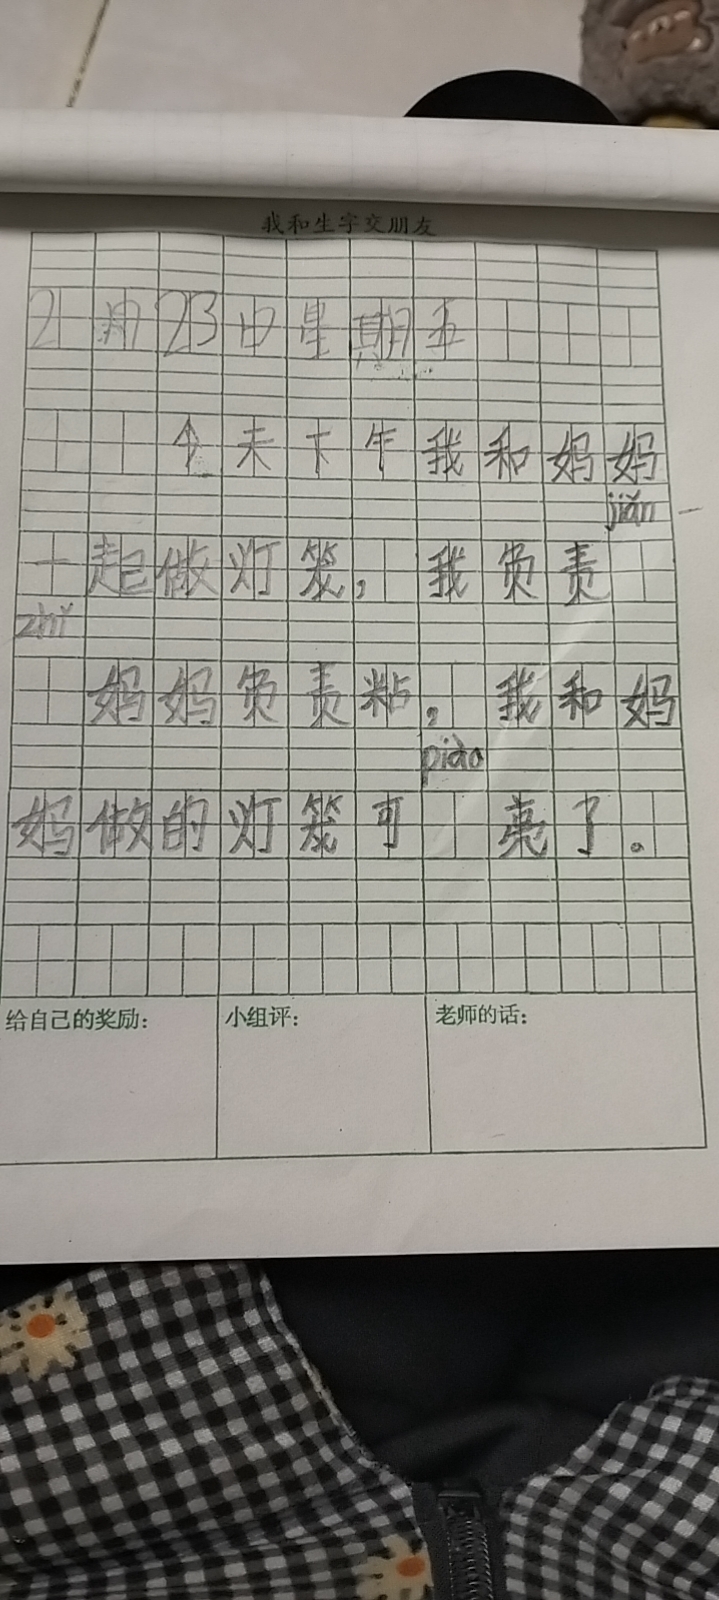 我和生字交朋友
2月23日星期五
今天下午我和妈妈
jiǎn
一起做灯笼，我负责
zhǐ
妈妈负责粘，我和妈
piào
妈做的灯笼可亮了。
给自己的奖励： 小组评： 老师的话：